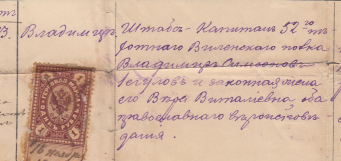 В. Владиміръ
Штабсъ-Капитанъ 52го
пѣхотнаго Виленскаго полка
Владиміръ Симеоновъ
и законная жена
его Вѣра Витальевна, оба
православнаго вѣроисповѣ
данія.
1 1
16 ноября